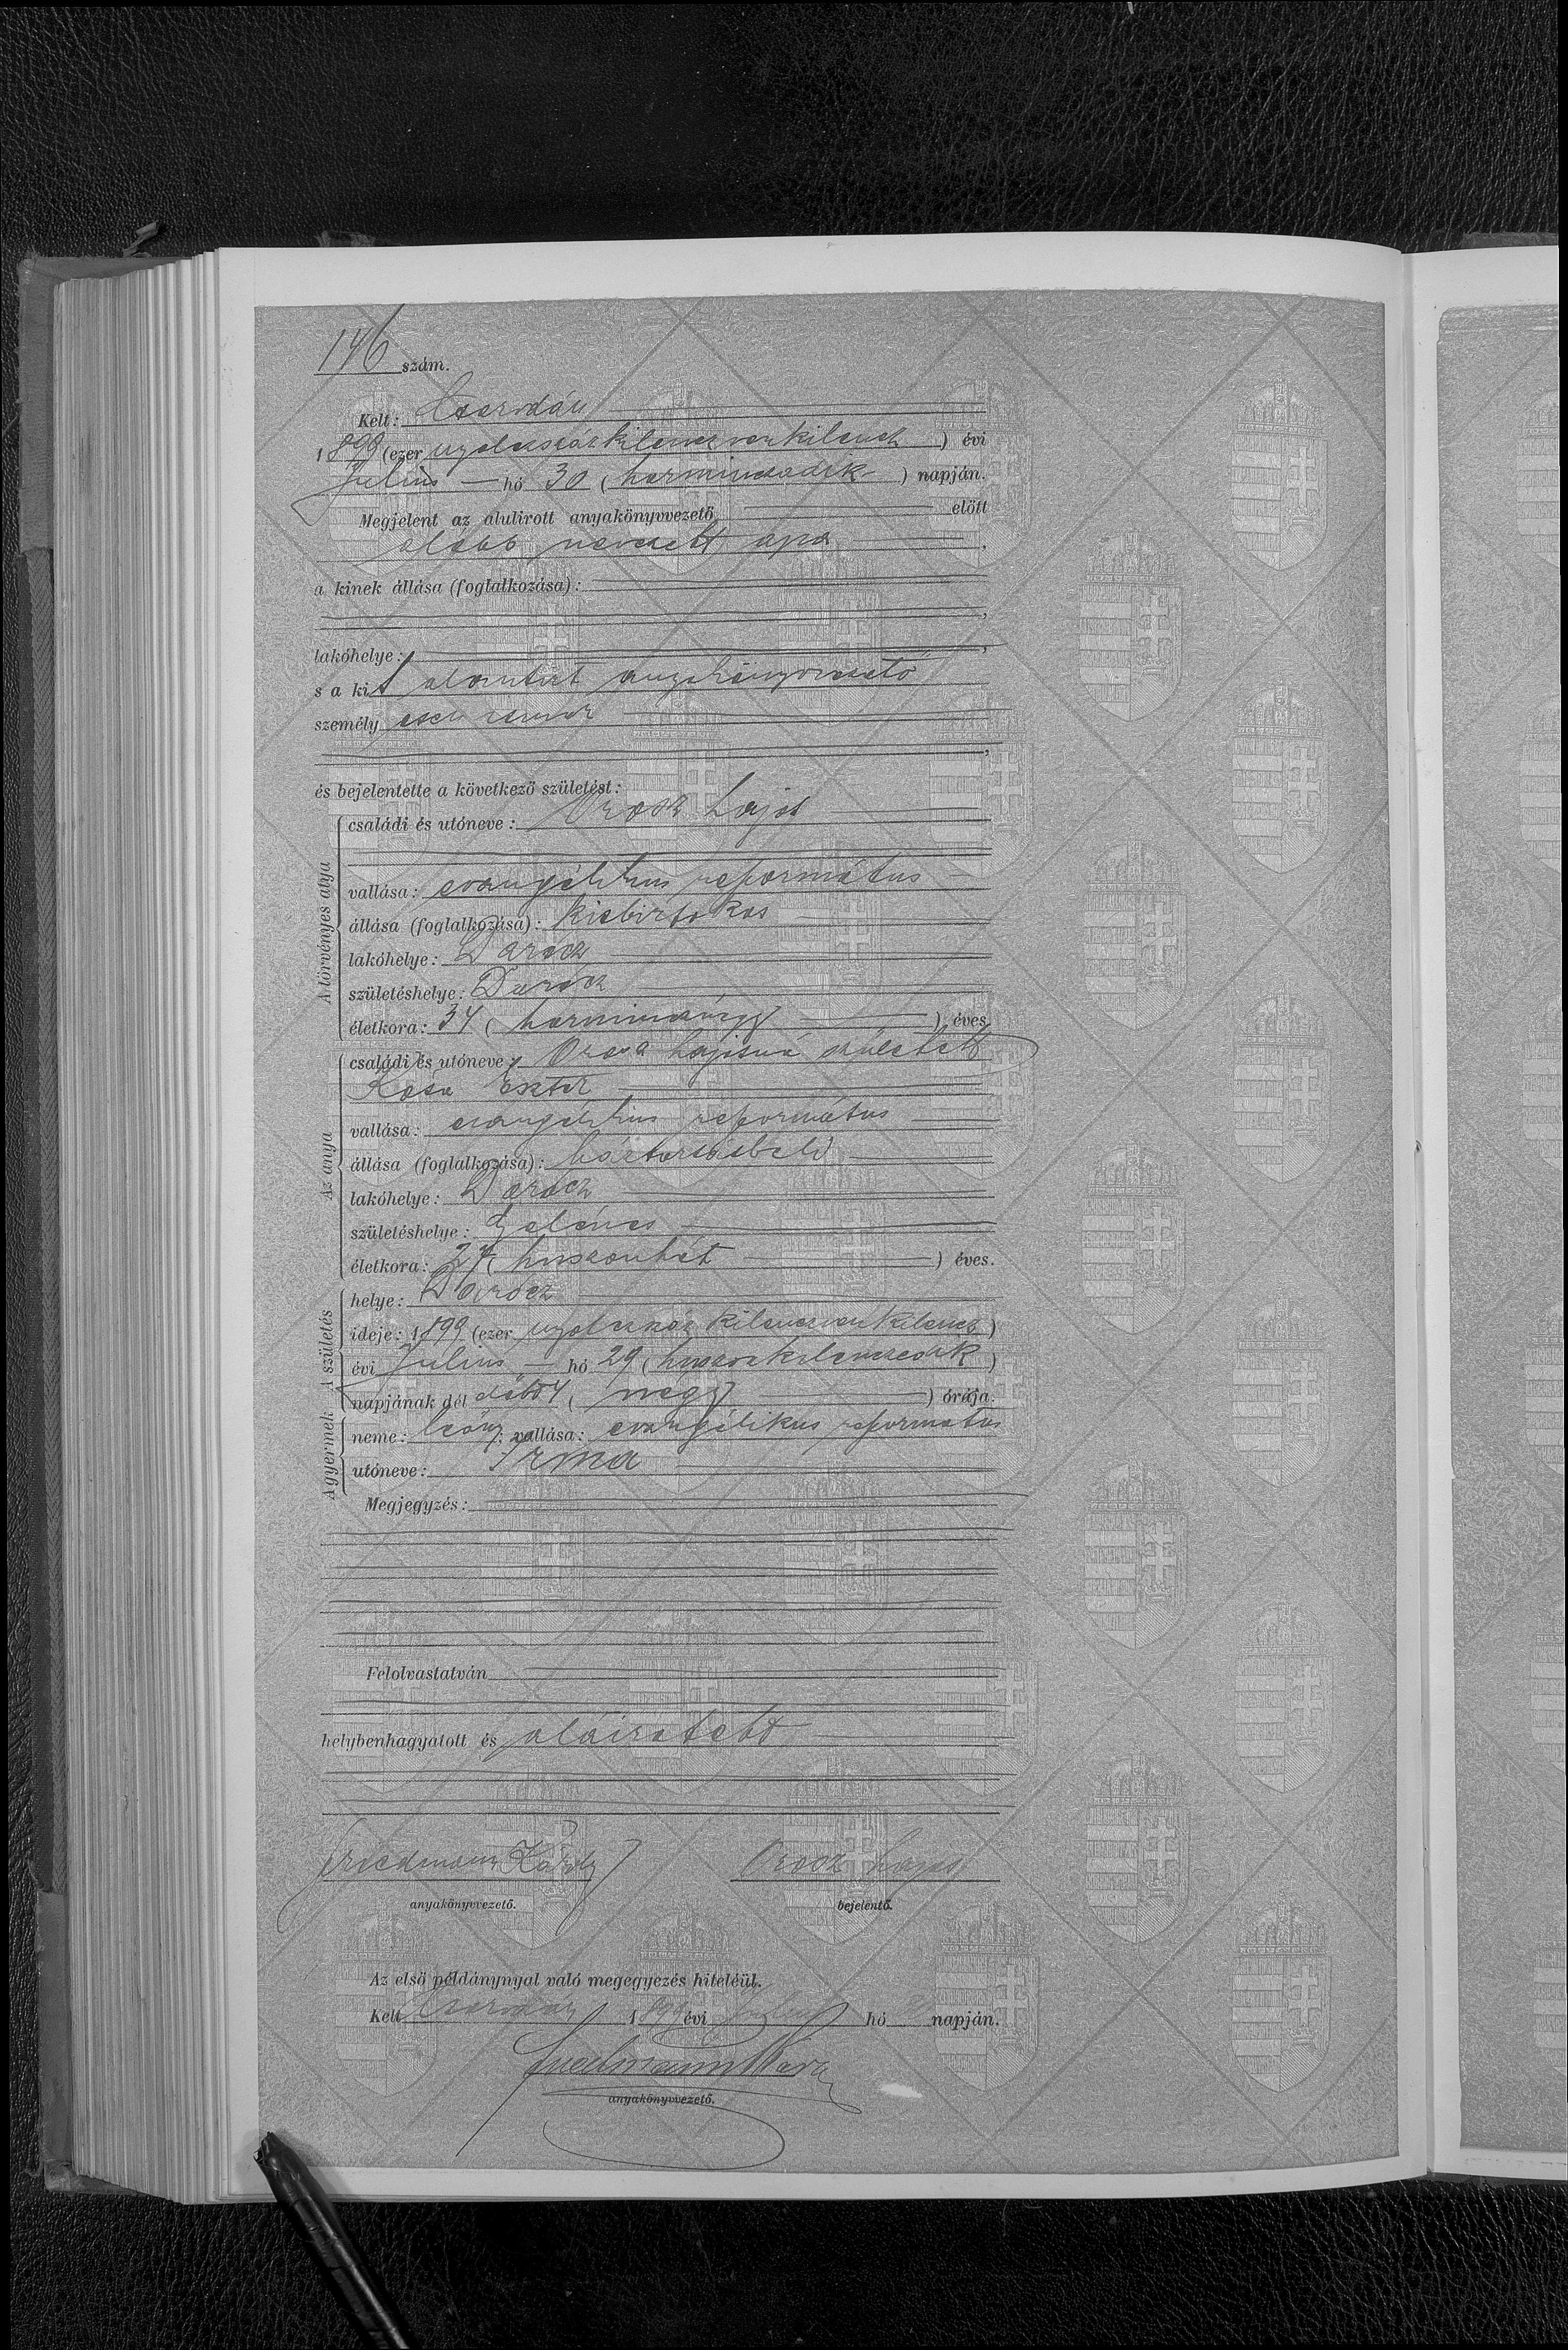 146 szám.
Kelt: Csarodán
1899 (ezer nyolczszázkilenczvenkilencz) évi
Julius hó 30 (harminczadik) napján.
Megjelent az alulirott anyakönyvvezető előtt
alább nevezett apa,
a kinek állása (foglalkozása):
lakóhelye:
s a kit alantirt anyakönyvvezető
személyesen ismer
és bejelentette a következő születést:
A törvényes atya
családi és utóneve: Orosz Lajos
vallása: evangélikus református
állása (foglalkozása): kisbirtokos
lakóhelye: Darócz
születéshelye: Darócz
életkora: 34 (harmincznégy) éves
Az anya
családi és utóneve: Orosz Lajosné született
Kósa Eszter
vallása: evangélikus református
állása (foglalkozása): háztartásbeli
lakóhelye: Darócz
születéshelye: Gelénes
életkora: 27 (huszonhét) éves.
A születés
helye: Darócz
ideje: 1899 (ezer nyolczszáz kilenczvenkilencz)
évi Julius hó 29 (huszonkilenczedik)
napjának dél előtt 4 (négy) órája.
A gyermek
neme: leány; vallása: evangélikus református
utóneve: Irma
Megjegyzés:
Felolvastatván
helybenhagyatott és aláiratott
Friedmann Károly Orosz Lajos
anyakönyvvezető. bejelentő.
Az első példánynyal való megegyezés hiteléül.
Kelt Csarodán 1899 évi Julius hó napján.
Friedmann Károly
anyakönyvvezető.